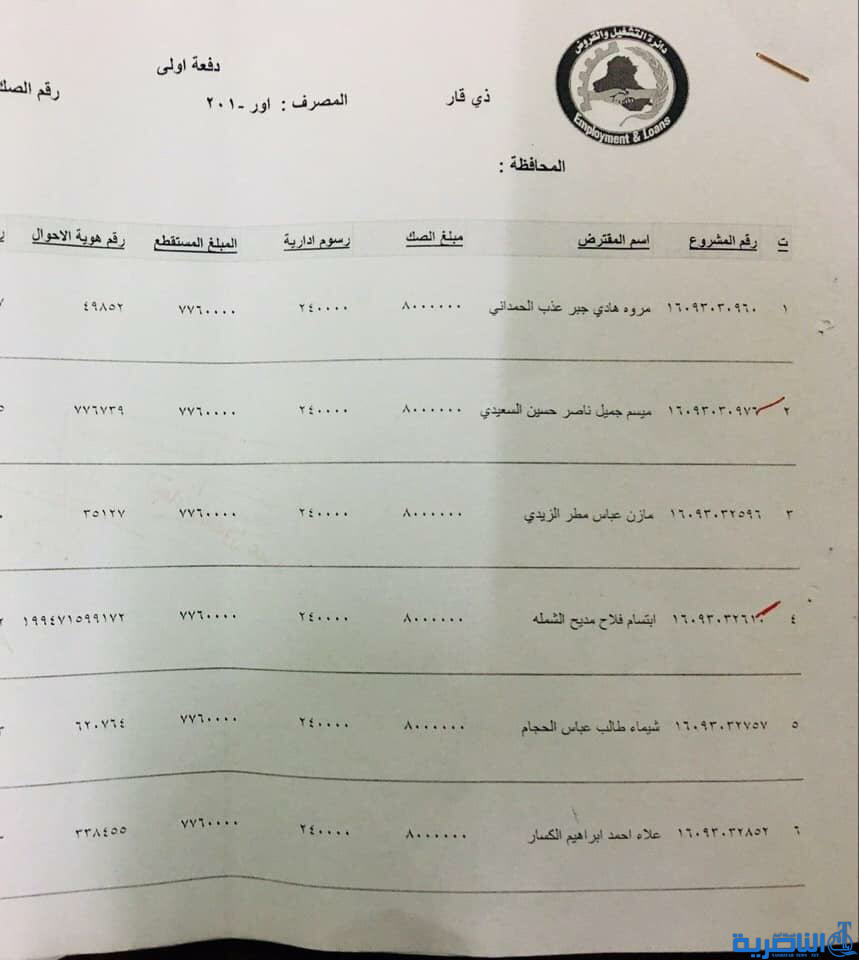 دائرة التشغيل والقروض
Employment & Loans
دفعة اولى
ذي قار
المصرف : اور -٢٠١
رقم الصك
المحافظة :
ت رقم المشروع اسم المقترض مبلغ الصك رسوم ادارية المبلغ المستقطع رقم هوية الاحوال
١ ١٦٠٩٣٠٣٠٩٦٠ مروه هادي جبر عذب الحمداني ٨٠٠٠٠٠٠ ٢٤٠٠٠٠ ٧٧٦٠٠٠٠ ٤٩٨٥٢
٢ ١٦٠٩٣٠٣٠٩٧٦ ميسم جميل ناصر حسين السعيدي ٨٠٠٠٠٠٠ ٢٤٠٠٠٠ ٧٧٦٠٠٠٠ ٧٧٦٧٣٩
٣ ١٦٠٩٣٠٣٢٥٩٦ مازن عباس مطر الزيدي ٨٠٠٠٠٠٠ ٢٤٠٠٠٠ ٧٧٦٠٠٠٠ ٣٥١٢٧
٤ ١٦٠٩٣٠٣٢٦١٠ ابتسام فلاح مديح الشمله ٨٠٠٠٠٠٠ ٢٤٠٠٠٠ ٧٧٦٠٠٠٠ ١٩٩٤٧١٥٩٩١٧٢
٥ ١٦٠٩٣٠٣٢٧٥٧ شيماء طالب عباس الحجام ٨٠٠٠٠٠٠ ٢٤٠٠٠٠ ٧٧٦٠٠٠٠ ٦٢٠٧٦٤
٦ ١٦٠٩٣٠٣٢٨٥٢ علاء احمد ابراهيم الكسار ٨٠٠٠٠٠٠ ٢٤٠٠٠٠ ٧٧٦٠٠٠٠ ٣٣٨٤٥٥
الناصرية